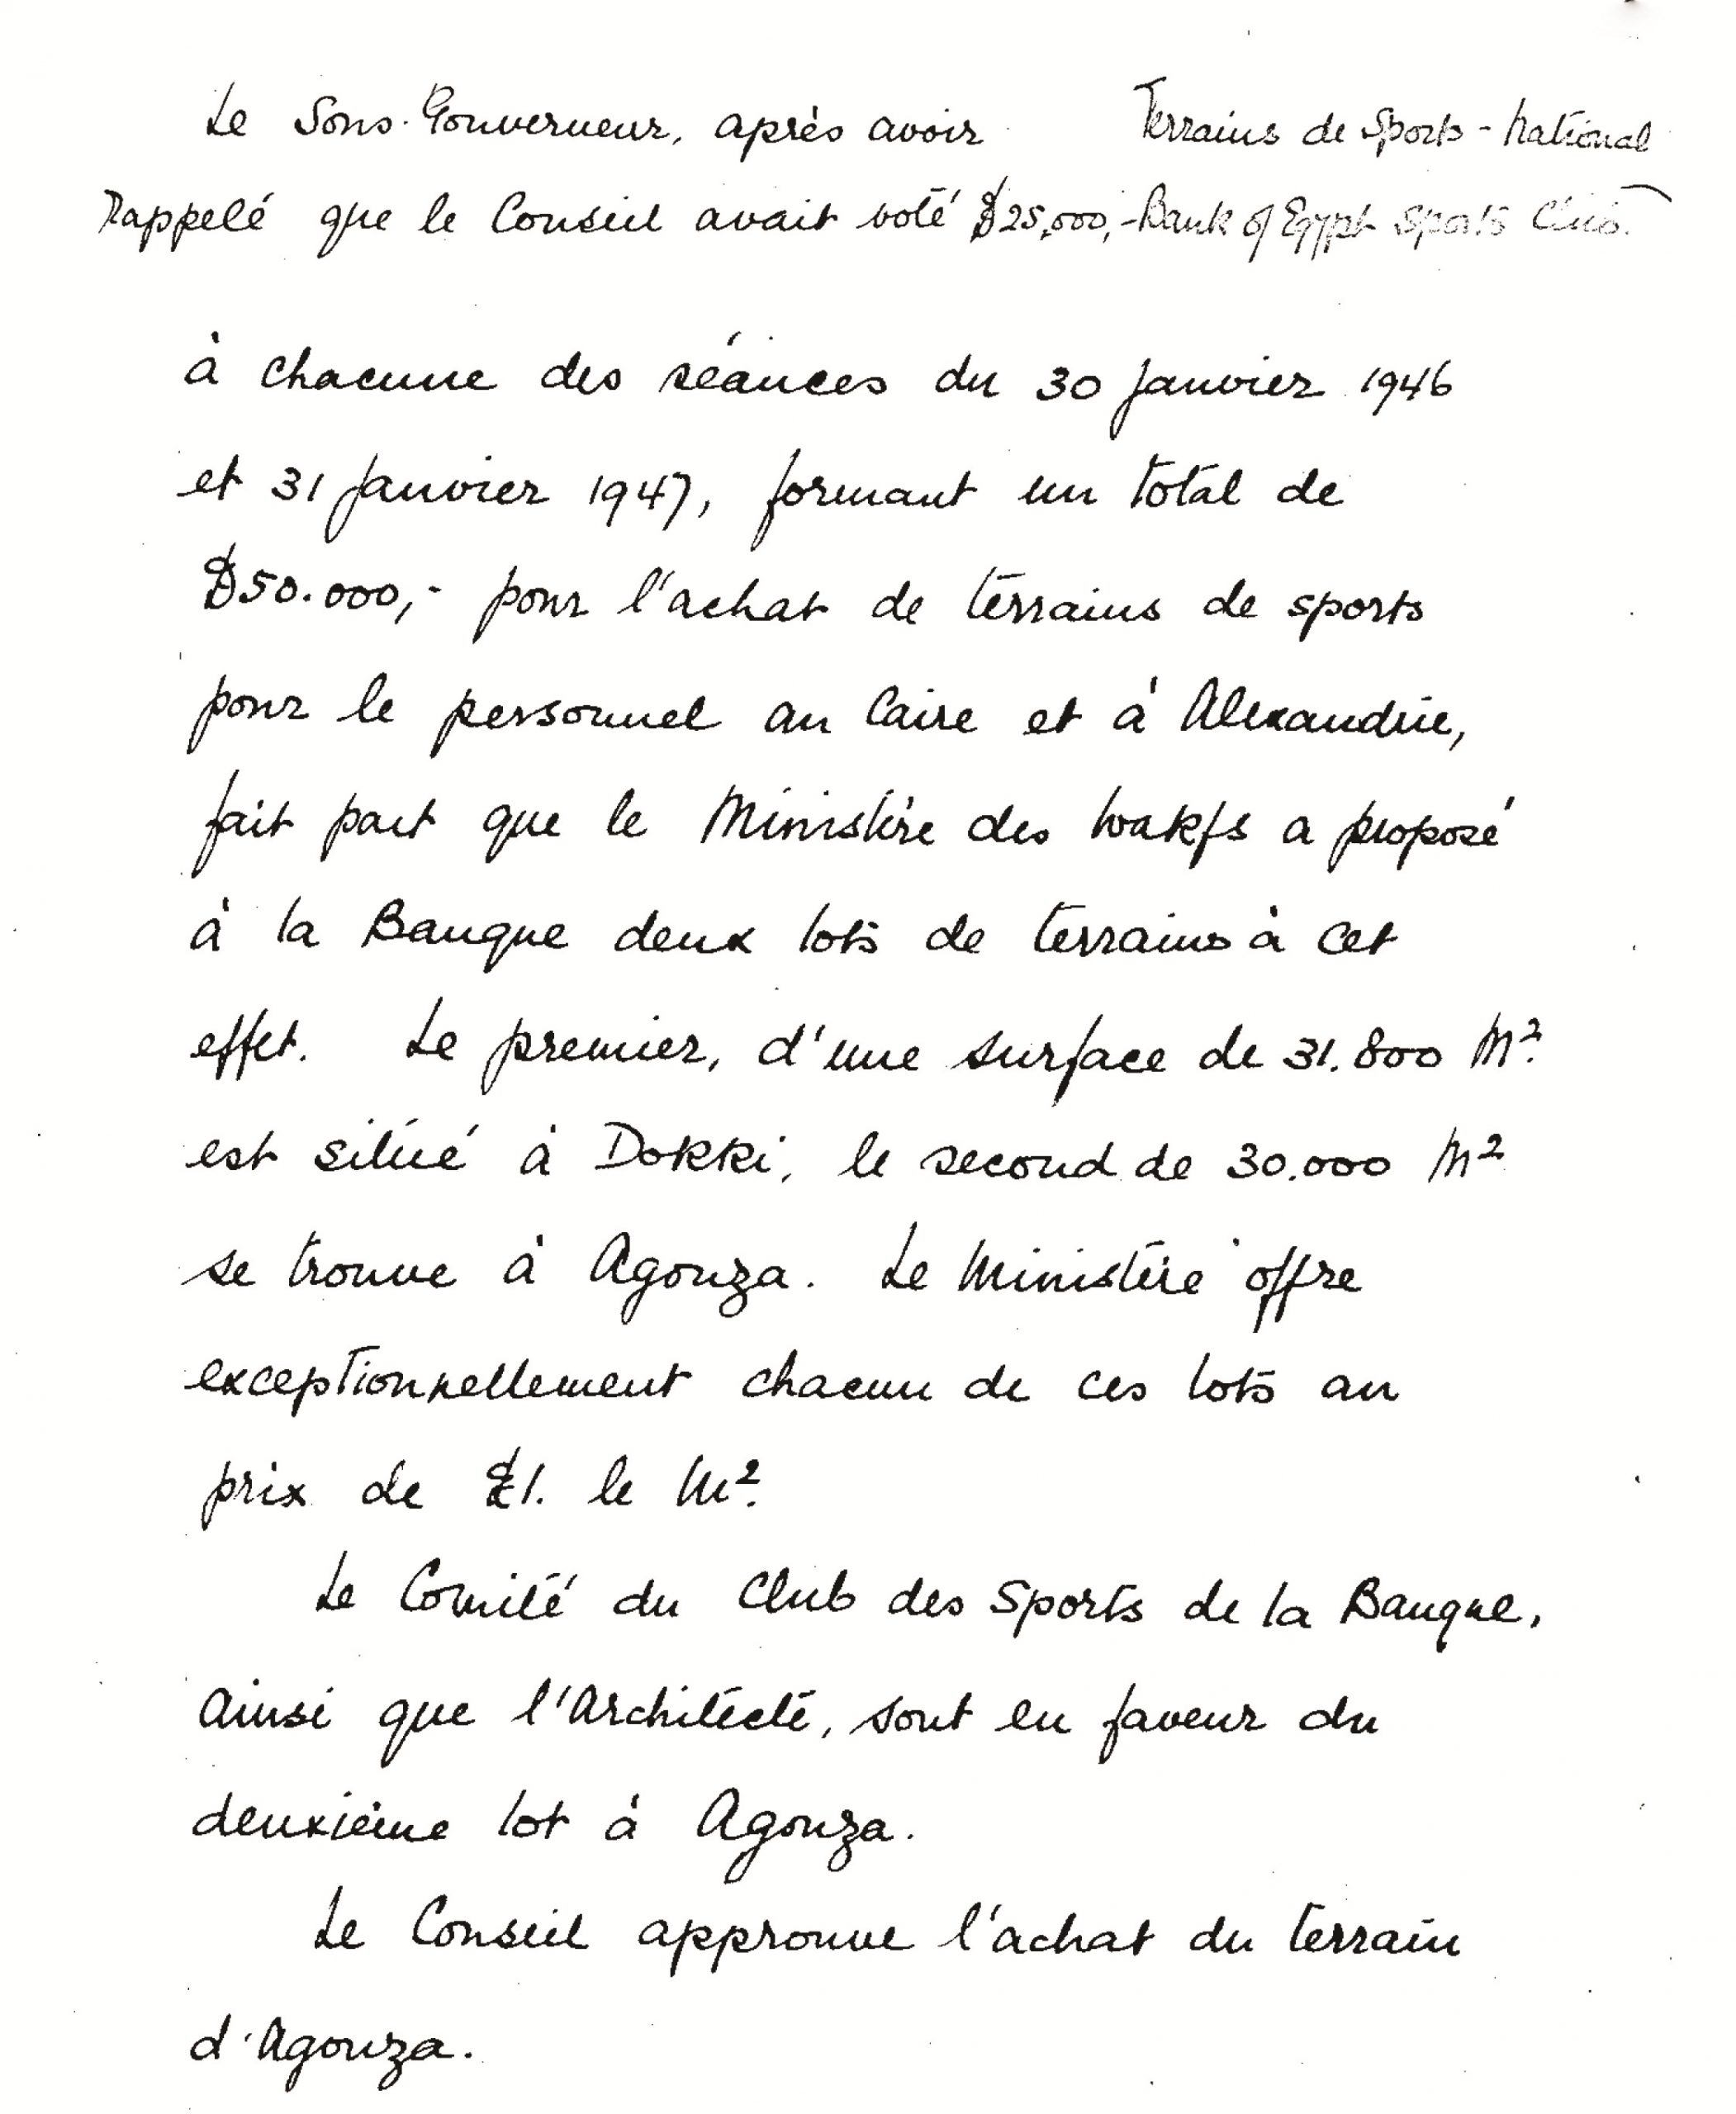 Le Sous-Gouverneur, après avoir
Terrains de Sports - National
rappelé que le Conseil avait voté £25,000,-
Bank of Egypt Sports Club.
à chacune des séances du 30 Janvier 1946
et 31 Janvier 1947, formant un total de
£50.000,- pour l'achat de terrains de sports
pour le personnel au Caire et à Alexandrie,
fait part que le Ministère des Wakfs a proposé
à la Banque deux lots de terrains à cet
effet. Le premier, d'une surface de 31.800 M².
est situé à Dokki, le second de 30.000 M²
se trouve à Agouza. Le Ministère offre
exceptionnellement chacun de ces lots au
prix de £1. le M².
Le Comité du Club des Sports de la Banque,
ainsi que l'Architecte, sont en faveur du
deuxième lot à Agouza.
Le Conseil approuve l'achat du terrain
d'Agouza.